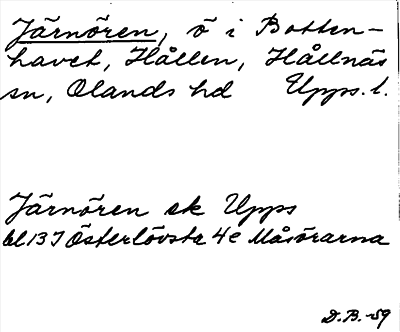 Järnören, ö i Botten-
havet, Hållen, Hållnäs
sn, Olands hd Upps. l.
Järnören ek Upps
bl 13 I Österlövsta 4 e Måsörarna
D.B. -59